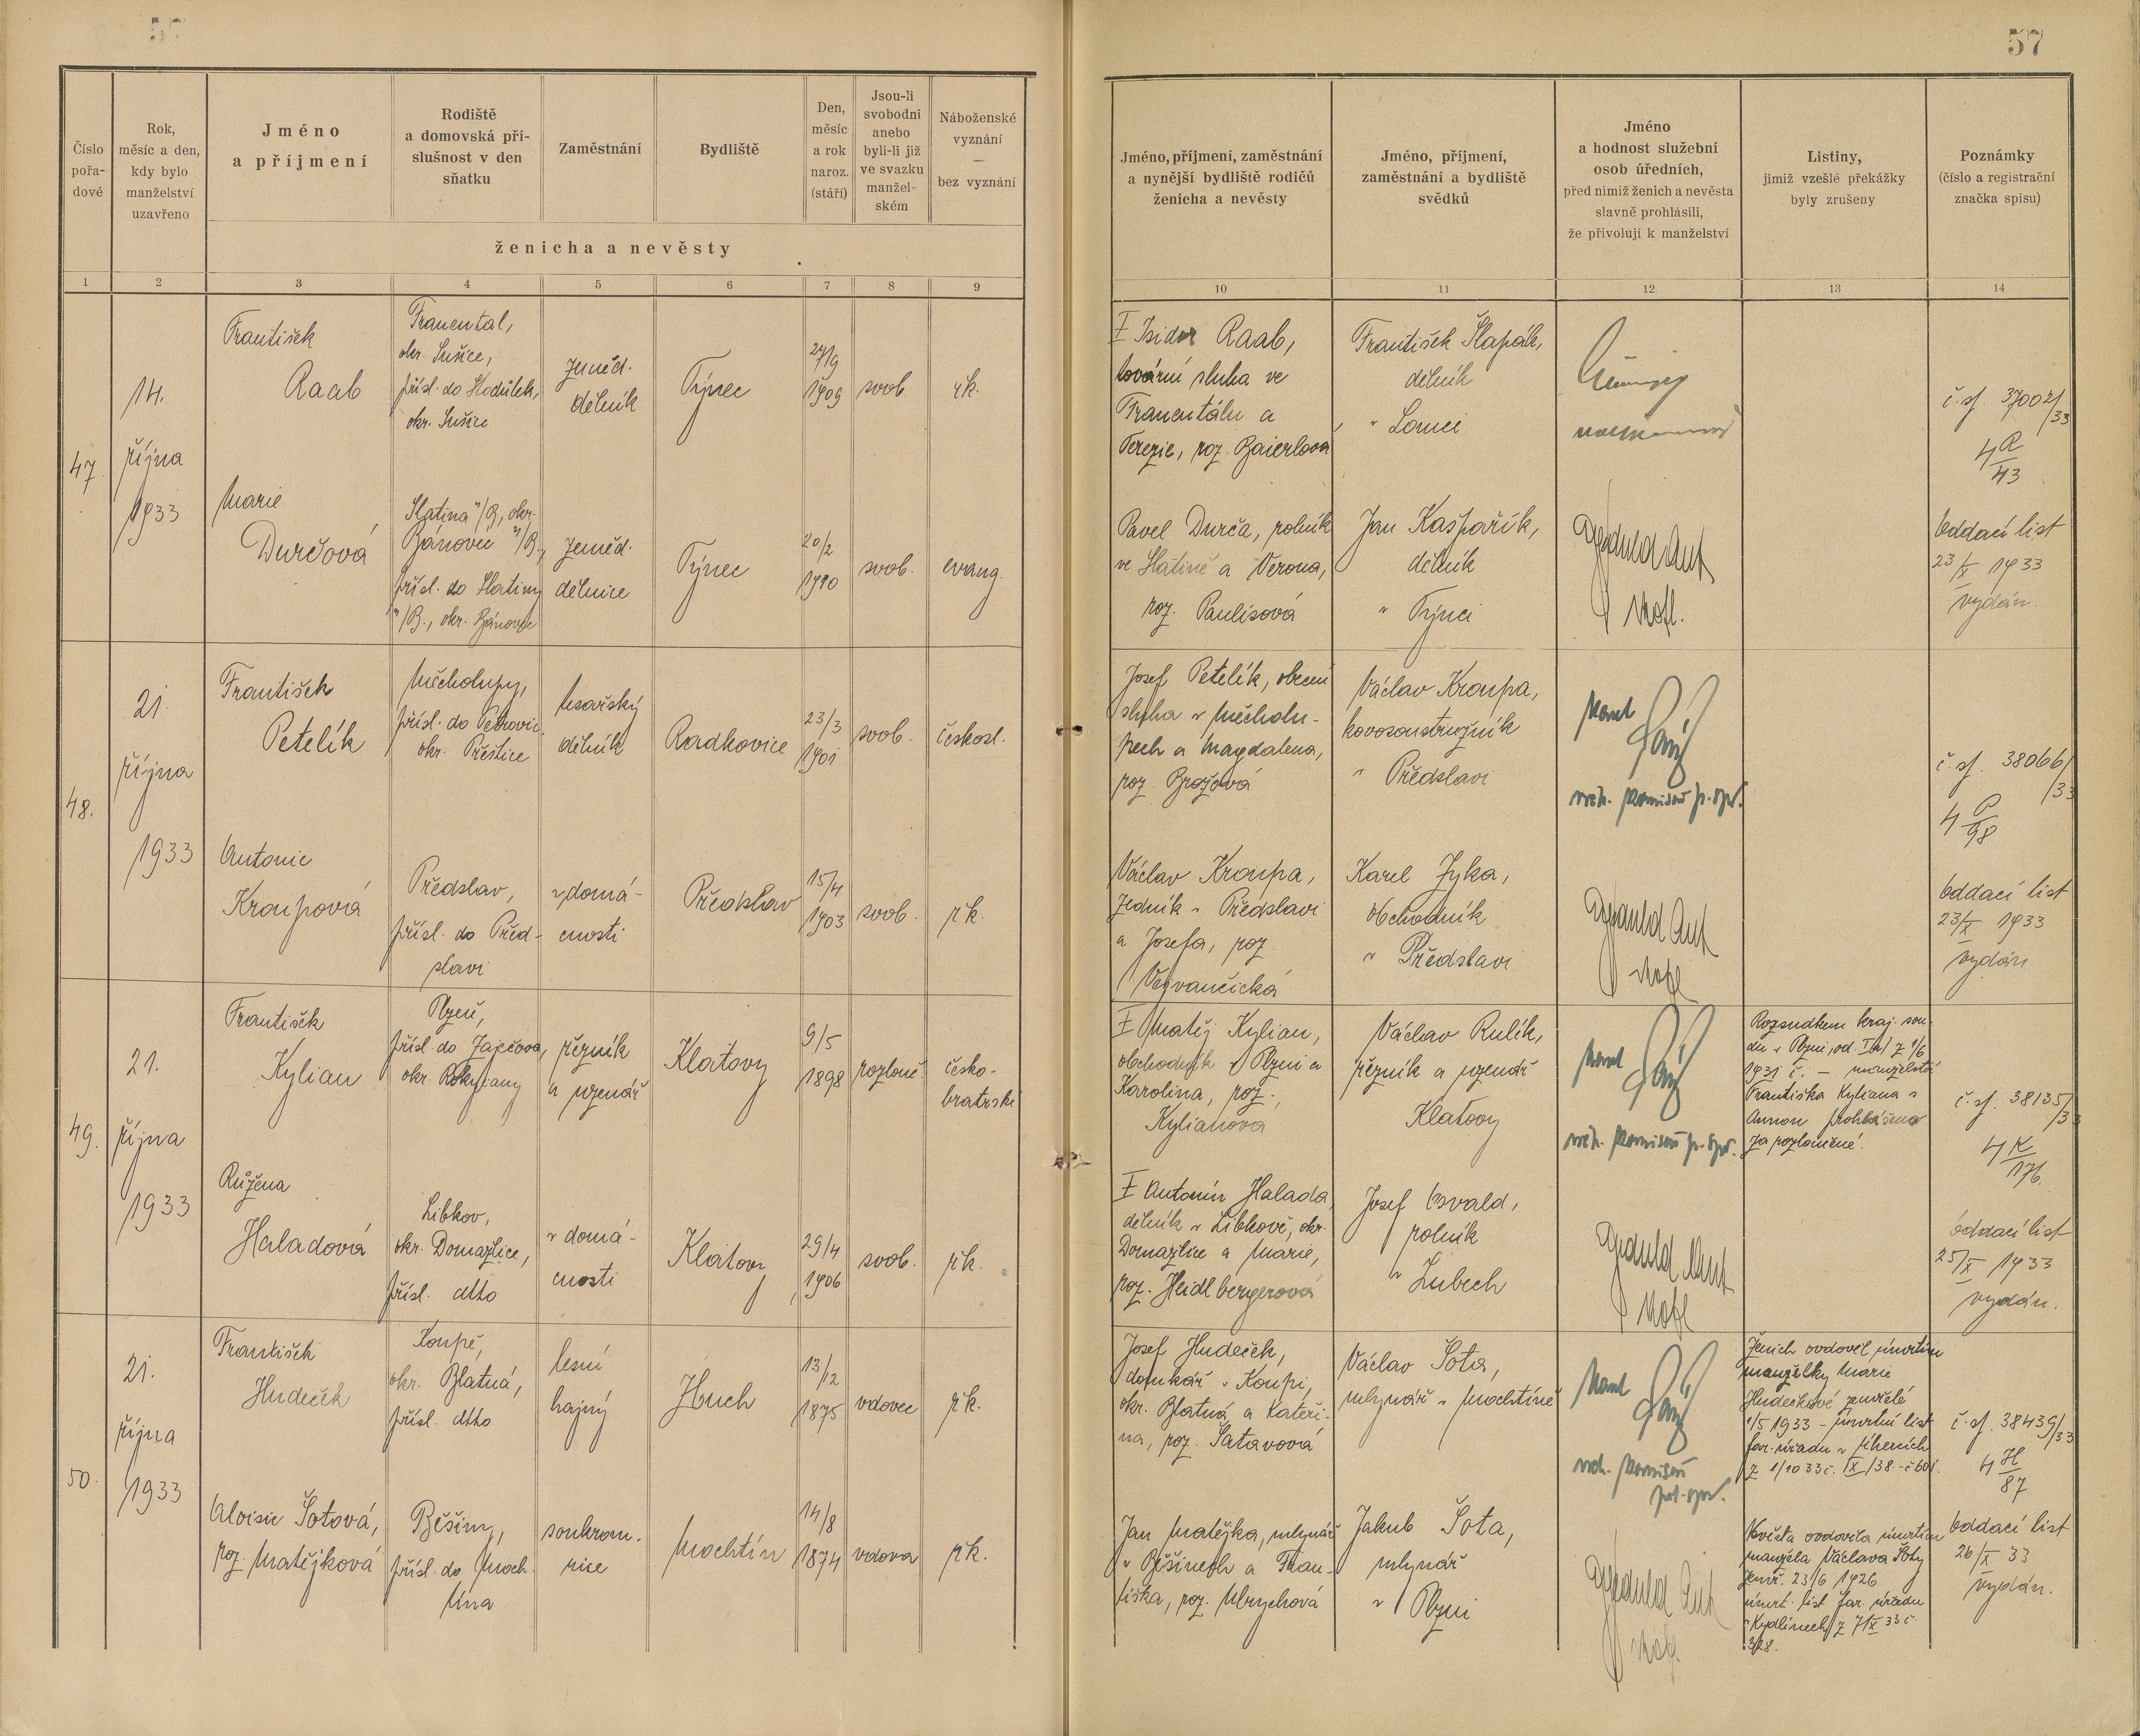 57
Číslo
pořa-
dové
Rok,
měsíc a den,
kdy bylo
manželství
uzavřeno
Jméno
a příjmení
Rodiště
a domovská pří-
slušnost v den
sňatku
Zaměstnání
Bydliště
Den,
měsíc
a rok
naroz.
(stáří)
Jsou-li
svobodni
anebo
byli-li již
ve svazku
manžel-
ském
Náboženské
vyznání
—
bez vyznání
ženicha a nevěsty
Jméno, příjmení, zaměstnání
a nynější bydliště rodičů
ženicha a nevěsty
Jméno, příjmení,
zaměstnání a bydliště
svědků
Jméno
a hodnost služební
osob úředních,
před nimiž ženich a nevěsta
slavně prohlásili,
že přivolují k manželství
Listiny,
jimiž vzešlé překážky
byly zrušeny
Poznámky
(číslo a registrační
značka spisu)
1 2 3 4 5 6 7 8 9 10 11 12 13 14
47
14.
října
1933
František
Raab
Franental,
okr. Sušice,
přísl. do Hodůlek,
okr. Sušice
zeměd.
dělník
Týnec
27/9
1909
svob.
řk.
Isidor Raab,
tovární sluha ve
Franentálu a
Terezie, roz. Baierlová
František Šlapák,
dělník
v Lomci
č. sp. 37002/33
4 R/43
Marie
Durčová
Slatina n/B, okr.
Bánovce n/B.,
přísl. do Slatiny
n/B., okr. Bánovce
zeměd.
dělnice
Týnec
20/2
1910
svob.
evang.
Pavel Durča, rolník
ve Slatině a Verona,
roz. Paulisová
Jan Kašpařík,
dělník
v Týnci
Oddací list
23/X 1933
vydán.
48.
21.
října
1933
František
Petelík
Měcholupy,
přísl. do Petrovic,
okr. Přeštice
tesařský
dělník
Radkovice
23/3
1901
svob.
českosl.
Josef Petelík, obecní
sluha v Měcholu-
pech a Magdalena,
roz. Brožová
Václav Kroupa,
kovosoustružník
v Předslavi
Karel
vrch. komisař p. spr.
č. sp. 38066/33
4 P/98
Antonie
Kroupová
Předslav,
přísl. do Před-
slavi
v domá-
cnosti
Předslav
15/4
1903
svob.
řk.
Václav Kroupa,
zedník v Předslavi
a Josefa, roz.
Karel Zyka,
obchodník
v Předslavi
Oddací list
23/X 1933
vydán
49.
21.
října
1933
František
Kylian
Plzeň,
přísl. do Zaječova,
okr. Rokycany
řezník
a uzenář
Klatovy
9/5
1898
rozlouč.
česko-
bratrské
Matěj Kylian,
obchodník v Plzni a
Karolina, roz.
Kylianová
Václav Rulík,
řezník a uzenář
Klatovy
Karel
vrch. komisař p. spr.
Rozsudkem kraj. sou-
du v Plzni, od. z 1/6
1931 č. – manželství
Františka Kyliana s
Annou prohlášeno
za rozloučené.
č. sp. 38135/33
4 K/176.
Růžena
Haladová
Libkov,
okr. Domažlice,
přísl. dtto
v domá-
cnosti
Klatovy
29/4
1906
svob.
řk.
Antonín Halada,
dělník v Libkově, okr.
Domažlice a Marie,
roz. Heidlbergerová
Josef Osvald,
rolník
v Lubech
Oddací list
25/X 1933
vydán.
50.
21.
října
1933
František
Hudeček
Koupě,
okr. Blatná,
přísl. dtto
lesní
hajný
Huch
13/12
1875
vdovec
řk.
Josef Hudeček,
domkář v Koupi,
okr. Blatná a Kateři-
na, roz. Šatavová
Václav Šota,
mlynář v Mochtíně
Karel
vrch. komisař
pol. spr.
Ženich ovdověl úmrtím
manželky Marie
Hudečkové zemřelé
1/5 1933 – úmrtní list
far. úřadu v
z 1/10 33 č. IX/38. – č. 601.
č. sp. 38439/33
4 H/87
Aloisie Šotová,
roz. Matějková
Běšiny,
přísl. do Moch-
tína
soukrom-
nice
Mochtín
14/8
1874
vdova
řk.
Jan Matějka, mlynář
v Běšinech a Fran-
tiška, roz. Ulrychová
Jakub Šota,
mlynář
v Plzni
Nevěsta ovdověla úmrtím
manžela Václava Šoty
zemř. 23/6 1926
úmrt. list far. úřadu
v Kydlinech z 7/X 33 č.
328.
Oddací list
26/X 33
vydán.